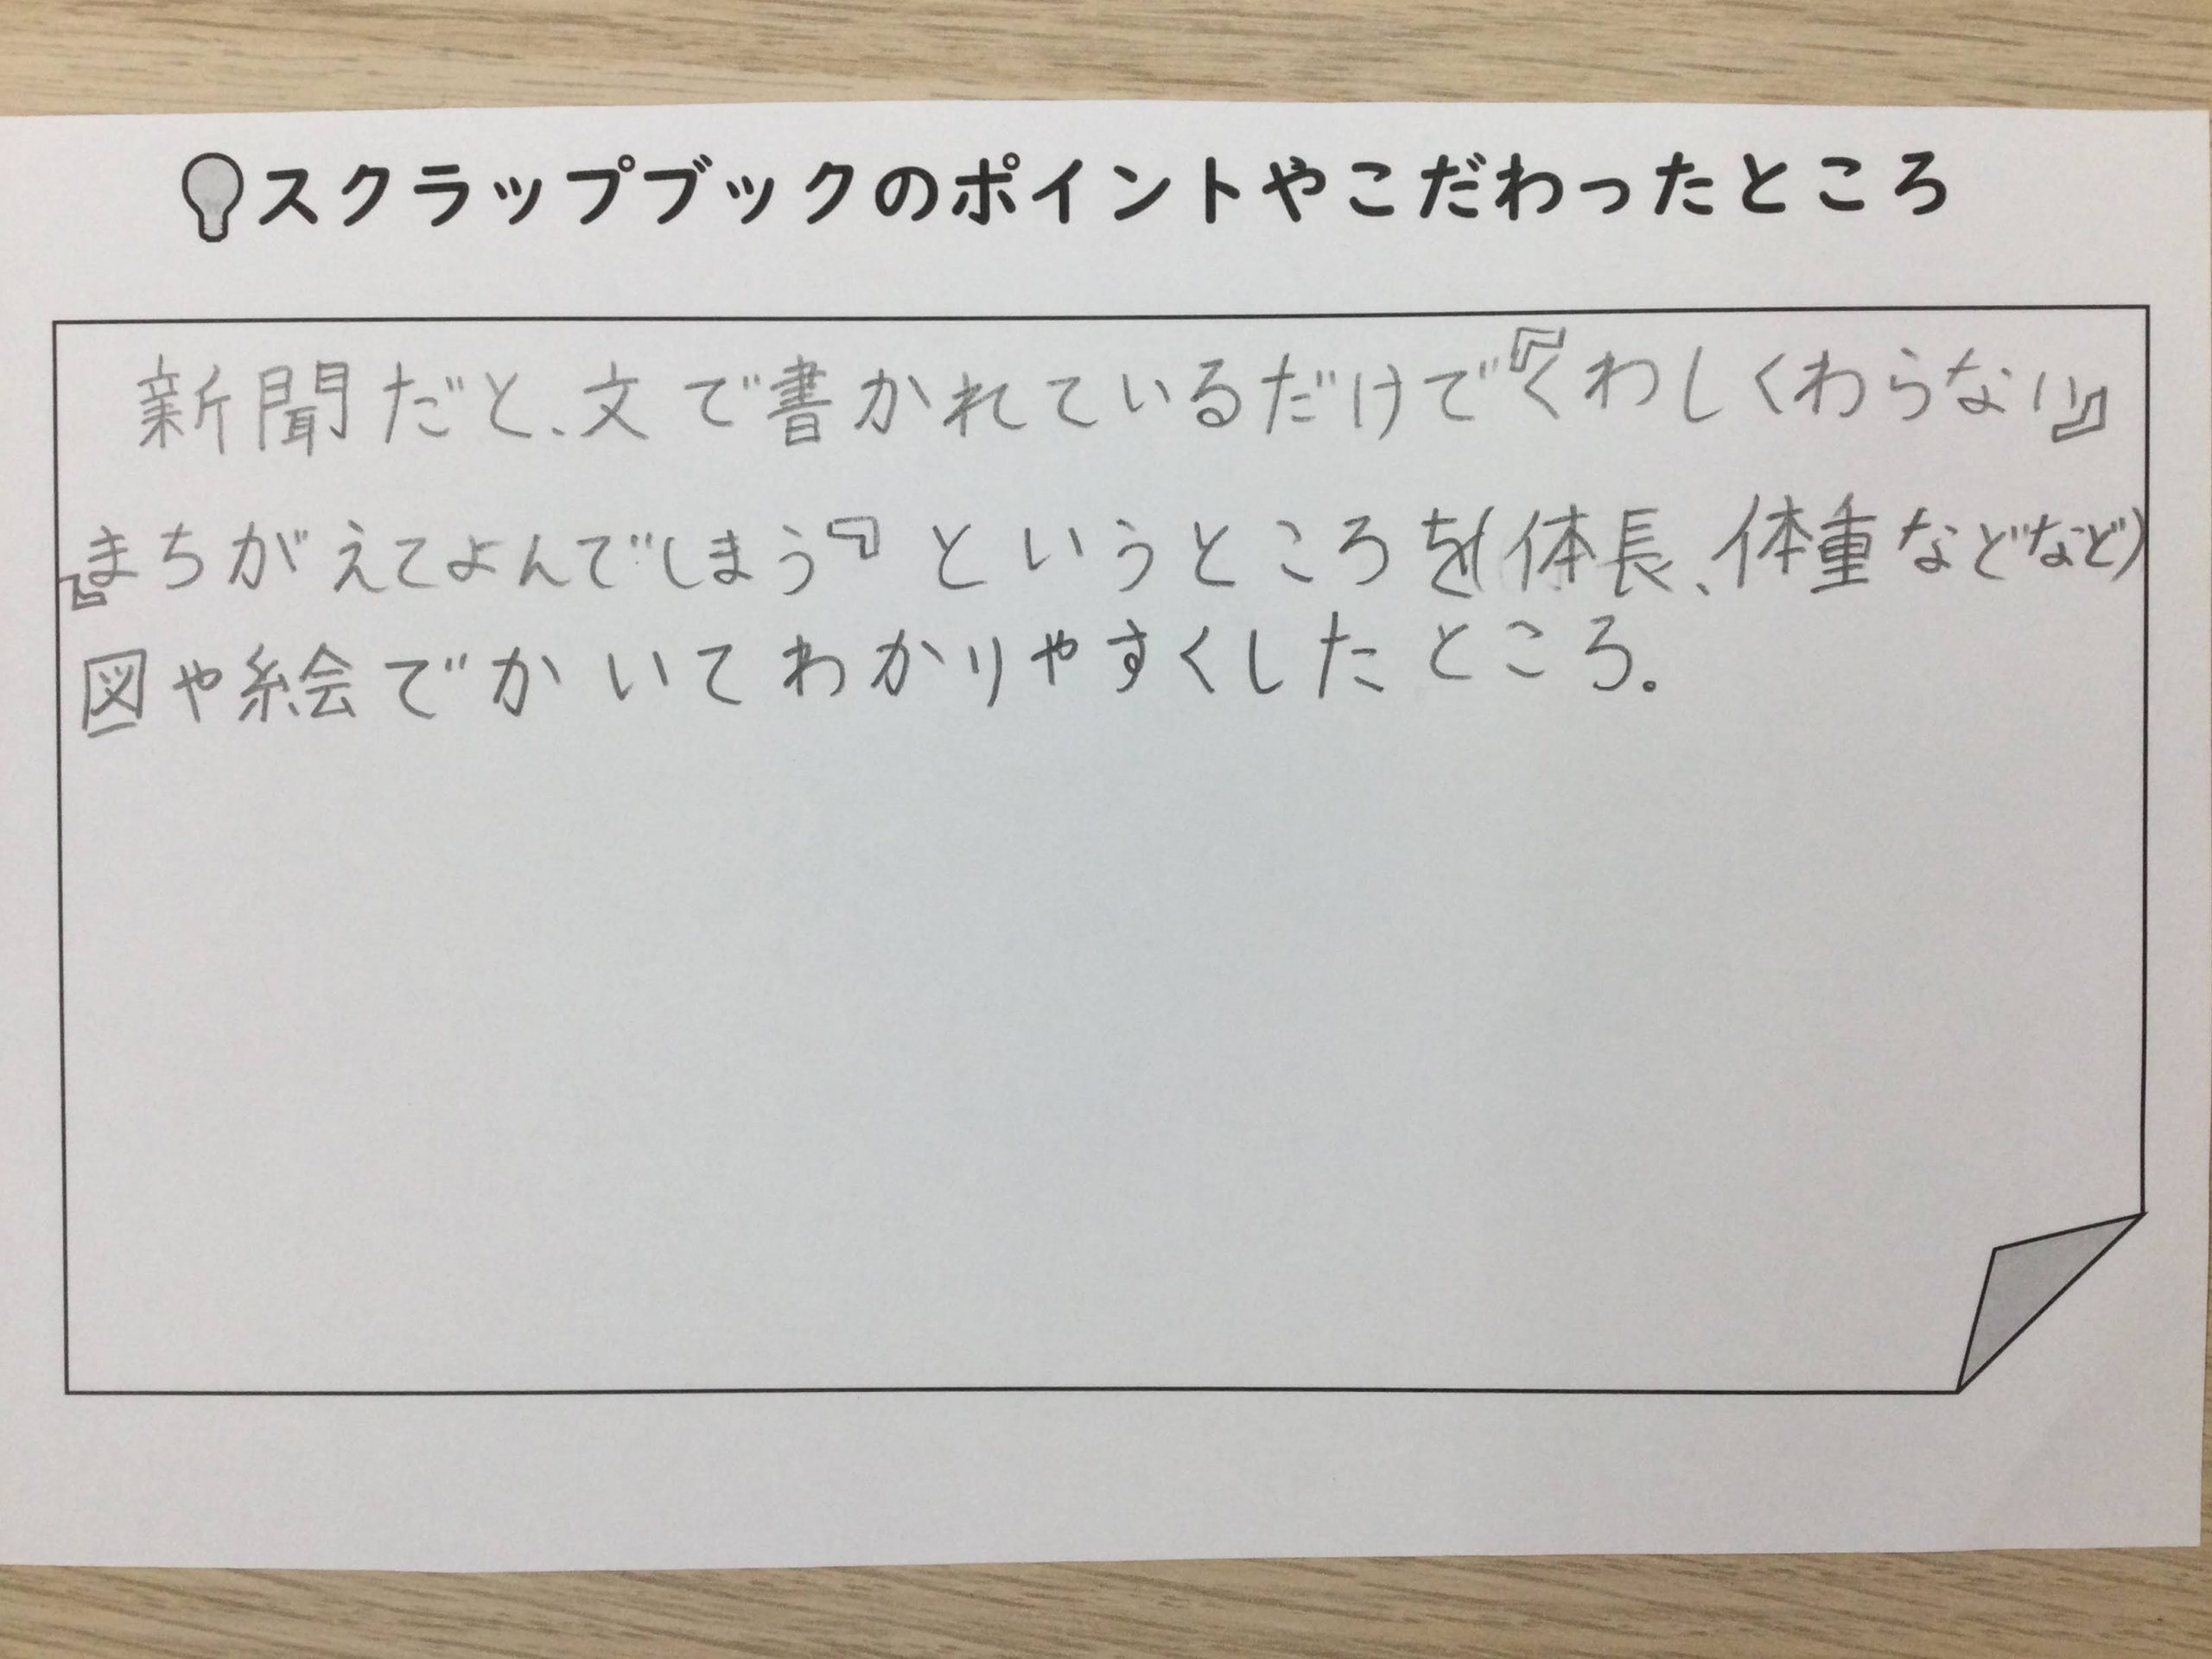 スクラップブックのポイントやこだわったところ
新聞だと、文で書かれているだけで『くわしくわらない』
『まちがえてよんでしまう』というところを(体長、体重などなど)
図や絵でかいてわかりやすくしたところ。